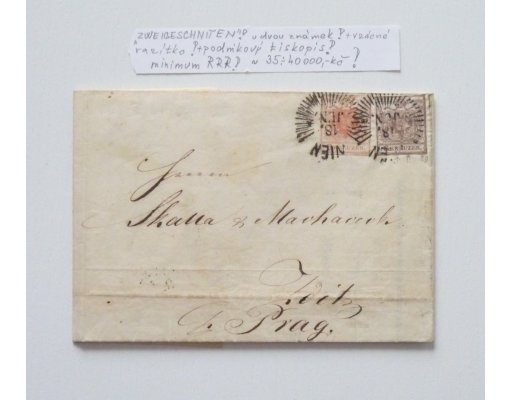 "ZWEIBESCHNITEN"!? u dvou známek!?+vzácné
razítko!?+podnikový tiskopis!?
minimum RRR!? ~ 35÷40000,-kč!?
WIEN
18.
JUN.
WIEN
18.
JUN.
KREUZER
Herrn
Skalla & Machacek
Prag.